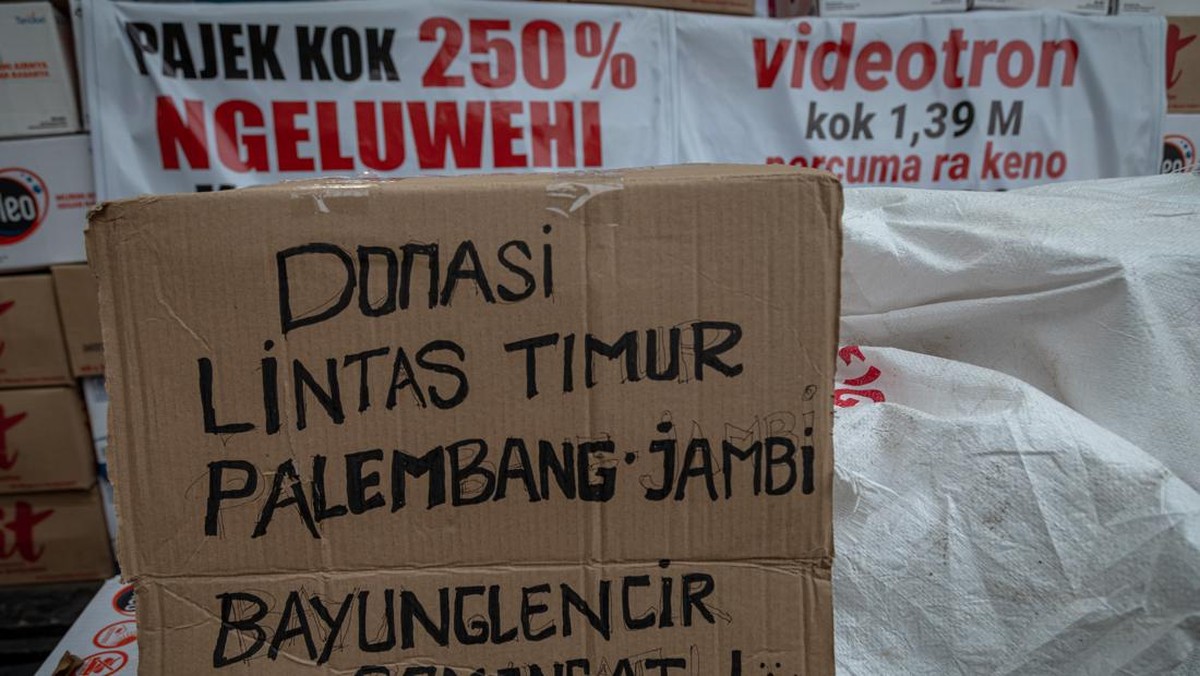 PAJEK KOK 250%
NGELUWEHI
videotron
kok 1,39 M
percuma ra keno
DONASI
LINTAS TIMUR
PALEMBANG·JAMBI
BAYUNGLENCIR